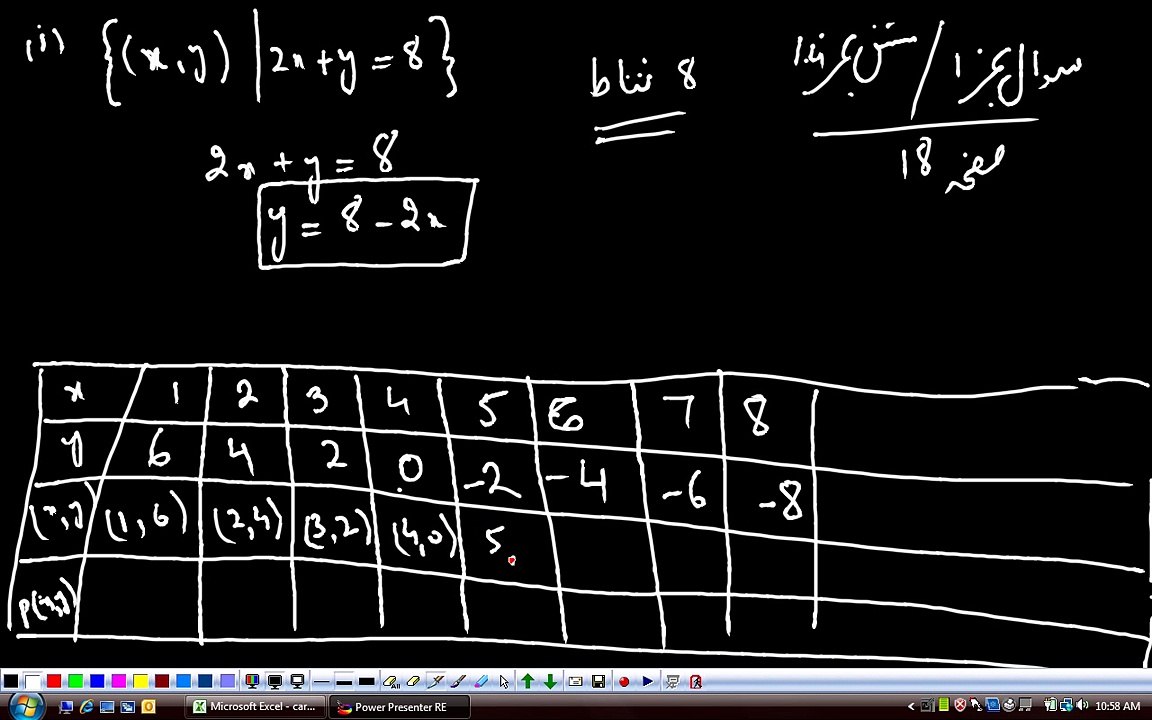 (ii) {(x,y) | 2x+y=8}
8 نقاط
سوال نمبر 1 / مشق نمبر
صفحہ 18
2x + y = 8
y = 8 - 2x
x 1 2 3 4 5 6 7 8
y 6 4 2 0 -2 -4 -6 -8
(x,y) (1,6) (2,4) (3,2) (4,0) 5
p(x,y)
Microsoft Excel - car...
Power Presenter RE
10:58 AM